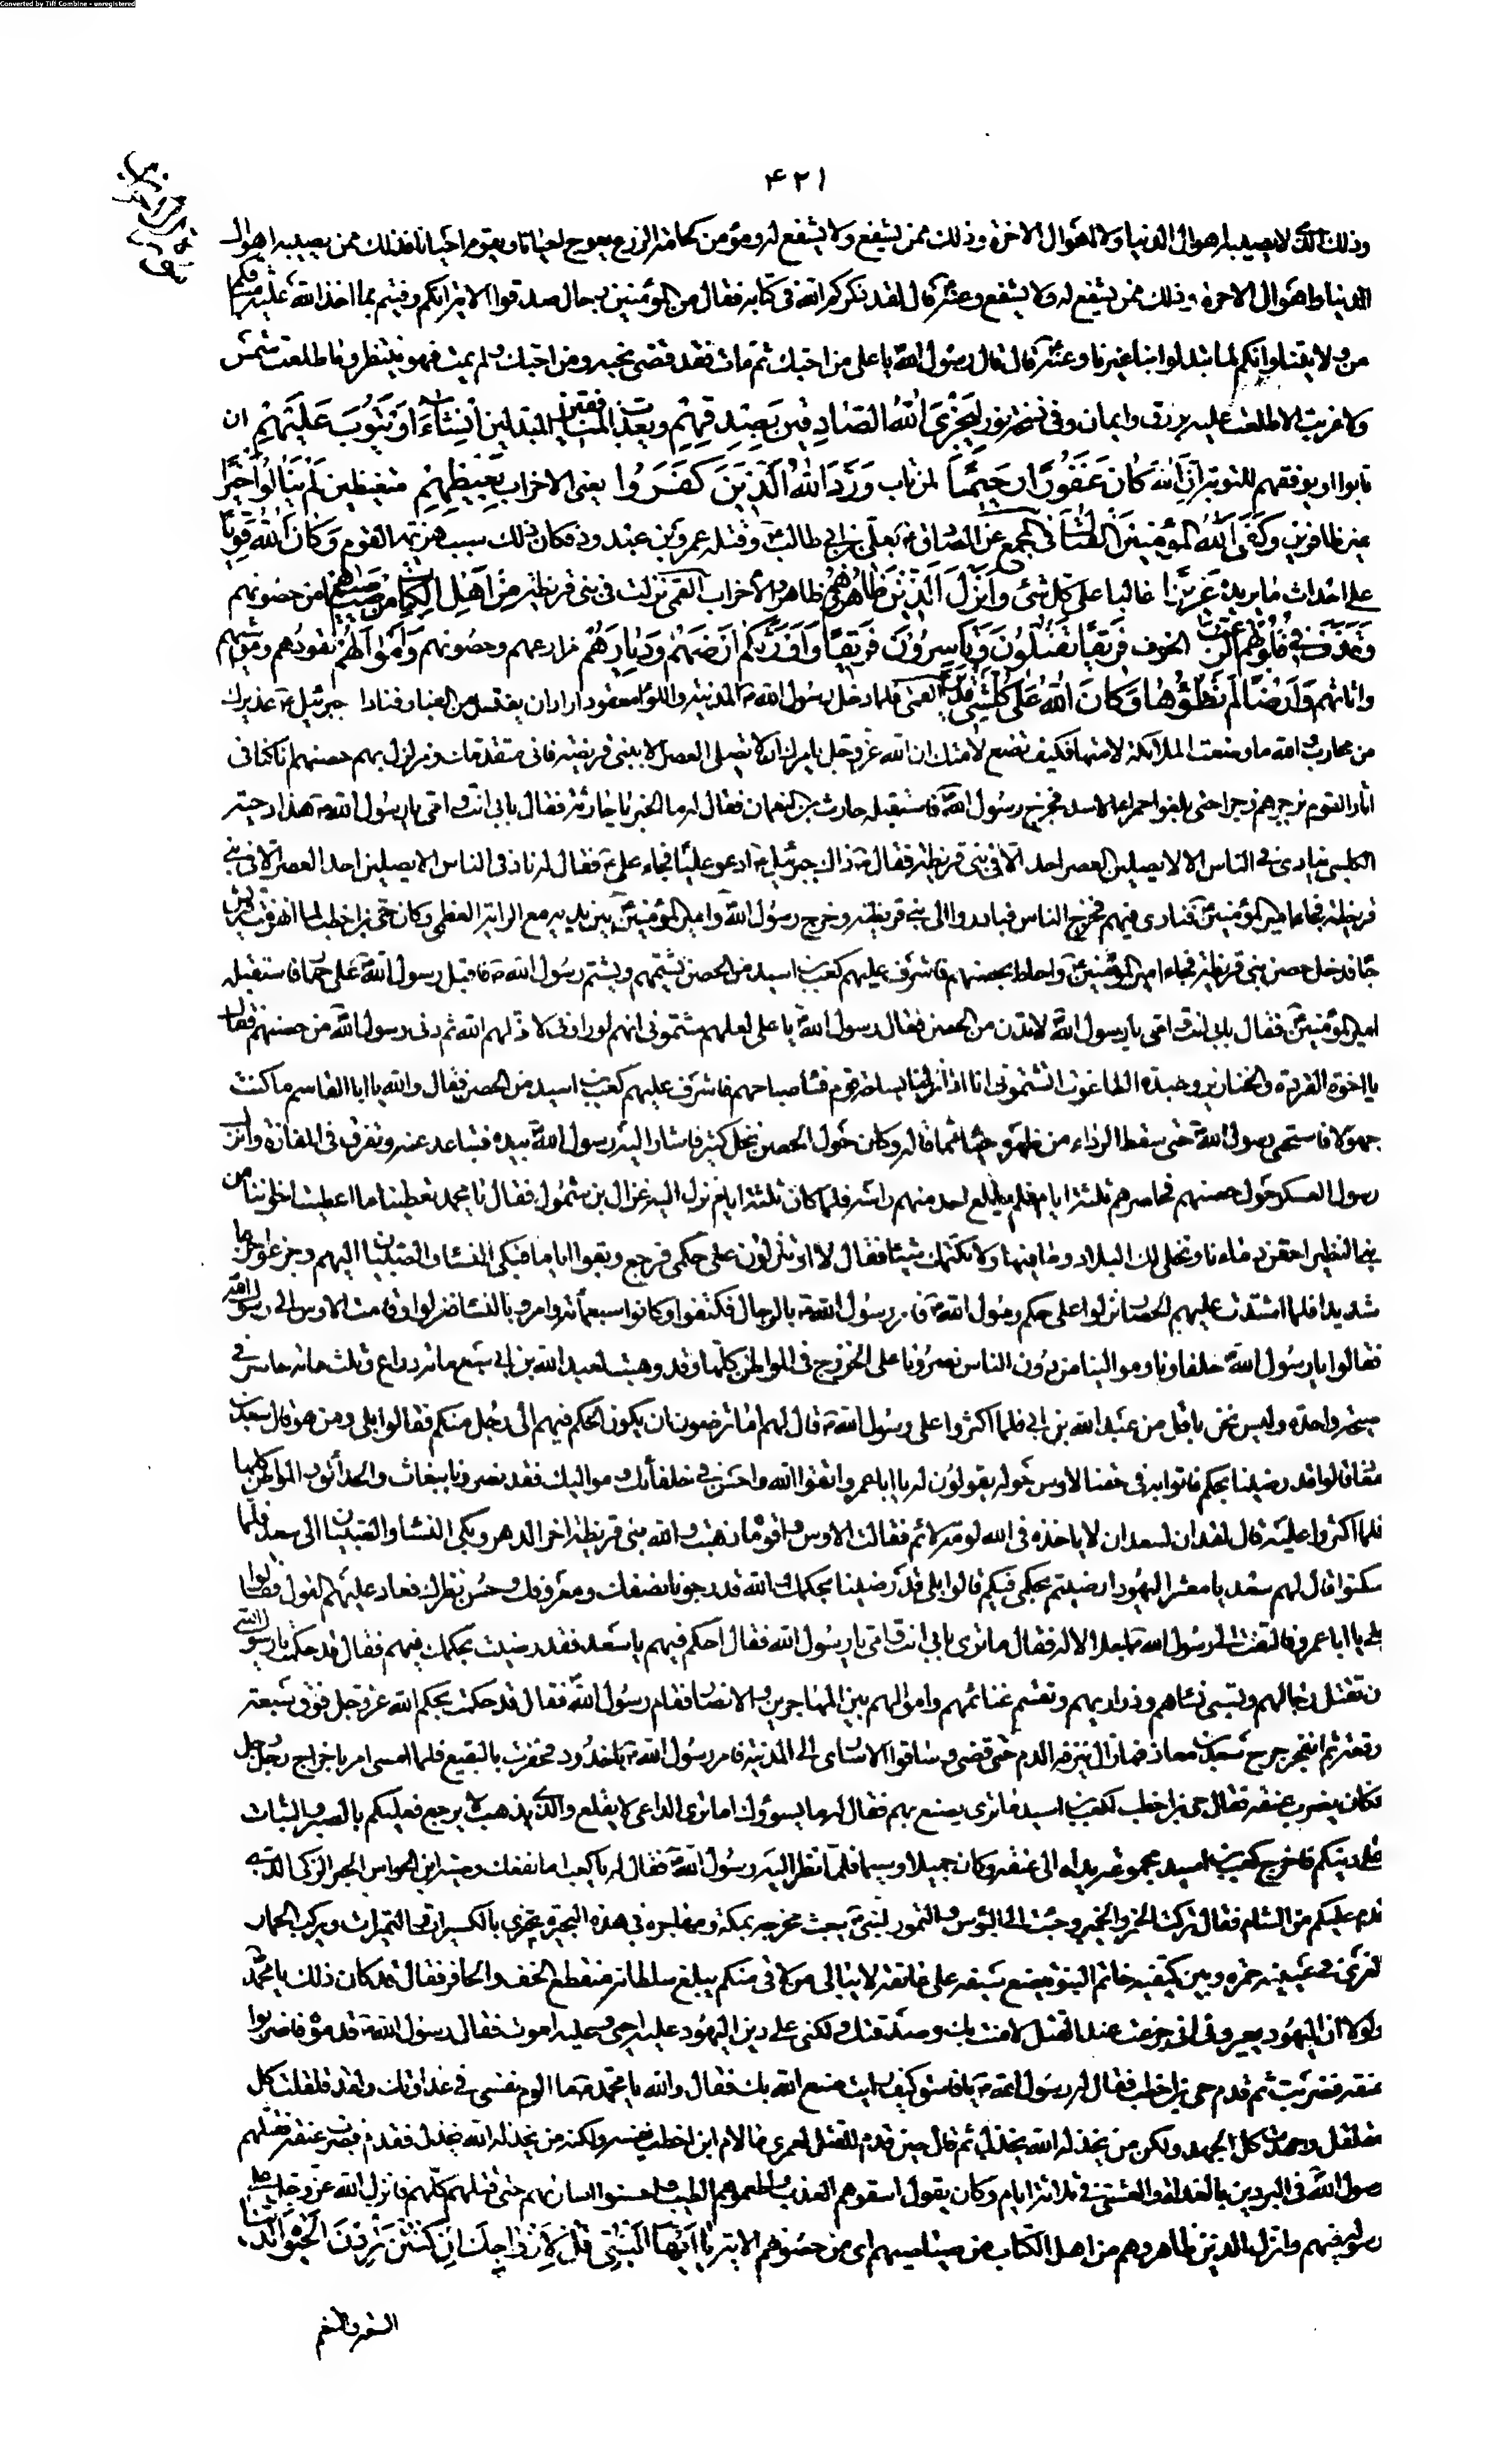 Converted by Tiff Combine - unregistered
۴۲۱
وذلك الذى لا يصيبه اهوال الدنيا ولا اهوال الاخرة وذلك ممن يشفع ولا يشفع له ومؤمن كخامة الزرع يعوج احيانا ويقوم احيانا فذلك ممن يصيبه اهوال
الدنيا واهوال الاخرة وذلك ممن يشفع له ولا يشفع وعنه قال لقد ذكركم الله فى كتابه فقال من المؤمنين رجال صدقوا الاية انكم وفيتم بما اخذ الله عليه ميثاقكم
من ولايتنا وانكم لم تبدلوا بنا غيرنا وعنه قال قال رسول الله يا على من احبك ثم مات فقد قضى نحبه ومن احبك ولم يمت فهو ينتظر وما طلعت شمس
ولا غربت الا طلعت عليه برزق وايمان وفى نسخة نور لِيَجْزِىَ اللهُ الصَّادِقِينَ بِصِدْقِهِمْ وَيُعَذِّبَ الْمُنَافِقِينَ المبدلين اِنْ شَاءَ اَوْ يَتُوبَ عَلَيْهِمْ ان
تابوا او يوفقهم للتوبة اِنَّ اللهَ كَانَ غَفُورًا رَحِيمًا لمن تاب وَرَدَّ اللهُ الَّذِينَ كَفَرُوا يعنى الاحزاب بِغَيْظِهِمْ متغيظين لَمْ يَنَالُوا خَيْرًا
غير ظافرين وَكَفَى اللهُ الْمُؤْمِنِينَ الْقِتَالَ فى المجمع عن الصادق بعلى بن ابى طالب وقتله عمرو بن عبد ود فكان ذلك سبب هزيمة القوم وَكَانَ اللهُ قَوِيًّا
على احداث ما يريده عَزِيزًا غالبا على كل شئ وَاَنْزَلَ الَّذِينَ ظَاهَرُوهُمْ ظاهروا الاحزاب القمى نزلت فى بنى قريظة مِنْ اَهْلِ الْكِتَابِ مِنْ صَيَاصِيهِمْ من حصونهم
وَقَذَفَ فِى قُلُوبِهِمُ الرُّعْبَ الخوف فَرِيقًا تَقْتُلُونَ وَتَأْسِرُونَ فَرِيقًا وَاَوْرَثَكُمْ اَرْضَهُمْ وَدِيَارَهُمْ مزارعهم وحصونهم وَاَمْوَالَهُمْ نقودهم ومواشيهم
واثاثهم وَاَرْضًا لَمْ تَطَؤُهَا وَكَانَ اللهُ عَلَى كُلِّ شَىْءٍ قَدِيرًا القمى فلما دخل رسول الله المدينة واللواء معقود اراد ان يغتسل من الغبار فناداه جبرئيل عذيرك
من محارب والله ما وضعت الملائكة لامتها فكيف تضع لامتك ان الله عز وجل يامرك ان لا تصلى العصر الا ببنى قريظة فانى متقدمك ومزلزل بهم حصنهم انا كنا فى
اثار القوم نزجرهم زجرا حتى بلغوا حمراء الاسد فخرج رسول الله فاستقبله حارثة بن النعمان فقال له ما الخبر يا حارثة فقال بابى انت وامى يا رسول الله هذا دحية
الكلبى ينادى فى الناس الا لا يصلين العصر احد الا فى بنى قريظة فقال ذاك جبرئيل ادعو عليا فجاء على فقال له ناد فى الناس لا يصلين احد العصر الا فى بنى
قريظة فجاء امير المؤمنين فنادى فيهم فخرج الناس فبادروا الى بنى قريظة وخرج رسول الله وامير المؤمنين بين يديه مع الراية العظمى وكان حى بن اخطب لما انهزمت قريش
جاء فدخل حصن بنى قريظة فجاء امير المؤمنين واحاط بحصنهم فاشرف عليهم كعب بن اسيد من الحصن يشتمهم ويشتم رسول الله فاقبل رسول الله على حمار فاستقبله
امير المؤمنين فقال بابى انت وامى يا رسول الله لا تدن من الحصن فقال رسول الله يا على لعلهم شتمونى انهم لو راونى لاذلهم الله ثم دنى رسول الله من حصنهم فقال
يا اخوة القردة والخنازير وعبدة الطاغوت اتشتمونى انا اذا نزلنا بساحة قوم فساء صباحهم فاشرف عليهم كعب بن اسيد من الحصن فقال والله يا ابا القاسم ما كنت
جهولا فاستحى رسول الله حتى سقط الرداء من ظهره حياء مما قاله وكان حول الحصن نخل كثير فاشار اليه رسول الله بيده فتباعد عنه وتفرق فى المفازة وانزل
رسول العسكر حول حصنهم فحاصرهم ثلثة ايام فلم يطلع احد منهم راسه فلما كان ثلثة ايام نزل اليه غزال بن شمول فقال يا محمد تعطينا ما اعطيت اخواننا من
بنى النضير احقن دماءنا ونخلى لك البلاد وما فيها ولا نكتمك شيئا فقال لا او تنزلون على حكمى فرجع وبقوا اياما فبكى النساء والصبيان اليهم وجزعوا جزعا
شديدا فلما اشتدت عليهم الحصار نزلوا على حكم رسول الله فامر رسول الله بالرجال فكتفوا وكانوا سبعمائة وامر بالنساء فعزلوا وقامت الاوس الى رسول الله
فقالوا يا رسول الله حلفاؤنا وموالينا من دون الناس نصرونا على الخزرج فى المواطن كلها وقد وهبت لعبد الله بن ابى سبعمائة دراع وثلث مائة حاسر فى
صبحة واحدة وليس نحن باقل من عبد الله بن ابى فلما اكثروا على رسول الله قال لهم اما ترضون ان يكون الحكم فيهم الى رجل منكم فقالوا بلى ومن هو قال سعد بن
معاذ قالوا قد رضينا بحكمه فاتوا به فى محفة الاوس حوله يقولون له يا ابا عمرو اتق الله واحسن فى حلفائك ومواليك فقد نصرونا ببغاث والحدائق والمواطن كلها
فلما اكثروا عليه قال لقد ان لسعد ان لا ياخذه فى الله لومة لائم فقالت الاوس واقوماه ذهبت والله بنى قريظة اخر الدهر وبكى النساء والصبيان الى سعد فلما
سكتوا قال لهم سعد يا معشر اليهود ارضيتم بحكمى فيكم قالوا بلى قد رضينا بحكمك والله قد رجونا نصفك ومعروفك وحسن نظرك فعاد عليهم القول فقالوا
بلى يا ابا عمرو فالتفت الى رسول الله اجلالا له فقال ما ترى بابى انت وامى يا رسول الله فقال احكم فيهم يا سعد فقد رضيت بحكمك فيهم فقال قد حكمت يا رسول الله
ان تقتل رجالهم وتسبى نساءهم وذراريهم وتقسم غنائمهم واموالهم بين المهاجرين والانصار فقام رسول الله فقال قد حكمت بحكم الله عز وجل فوق سبعة
رقعة ثم انفجر جرح سعد بن معاذ فما زال ينزفه الدم حتى قضى وساقوا الاسارى الى المدينة فامر رسول الله باخدود فحفرت بالبقيع فلما امسى امر باخراج رجل رجل
فكان يضرب عنقه فقال حى بن اخطب لكعب بن اسيد ما ترى يصنع بهم فقال له ما يسؤوك اما ترى الداعى لا يقلع والذى يذهب لا يرجع فعليكم بالصبر والثبات
على دينكم فاخرج كعب بن اسيد مجموعة يداه الى عنقه وكان جميلا وسيما فلما نظر اليه رسول الله فقال له يا كعب اما نفعك وصية ابن الحواس الحبر الزكى الذى
قدم عليكم من الشام فقال تركت الخمر والخمير وجئت الى البؤس والتمور لنبى يبعث مخرجه بمكة ومهاجره فى هذه البحيرة يجتزى بالكسيرات والتميرات ويركب الحمار
العرى فى عينيه حمرة وبين كتفيه خاتم النبوة يضع سيفه على عاتقه لا يبالى من لاقى منكم يبلغ سلطانه منقطع الخف والحافر فقال قد كان ذلك يا محمد
ولولا ان اليهود يعيرونى انى جزعت عند القتل لامنت بك وصدقتك ولكنى على دين اليهود عليه احيى وعليه اموت فقال رسول الله قدموه فاضربوا
عنقه فضربت ثم قدم حى بن اخطب فقال له رسول الله يا فاسق كيف رايت صنع الله بك فقال والله يا محمد ما الوم نفسى فى عداوتك ولقد قلقلت كل
مقلقل وجهدت كل الجهد ولكن من يخذله الله يخذل ثم قال حين قدم للقتل لعمرى ما لام ابن اخطب نفسه ولكنه من يخذله الله يخذل فقدم فضرب عنقه فقتلهم
رسول الله فى البردين بالغداة والعشى فى ثلاثة ايام وكان يقول اسقوهم العذب واطعموهم الطيب واحسنوا اسارهم حتى قتلهم كلهم فانزل الله عز وجل على
رسوله فيهم وانزل الذين ظاهروهم من اهل الكتاب من صياصيهم اى من حصونهم الاية يَا اَيُّهَا النَّبِىُّ قُلْ لِاَزْوَاجِكَ اِنْ كُنْتُنَّ تُرِدْنَ الْحَيٰوةَ الدُّنْيَا